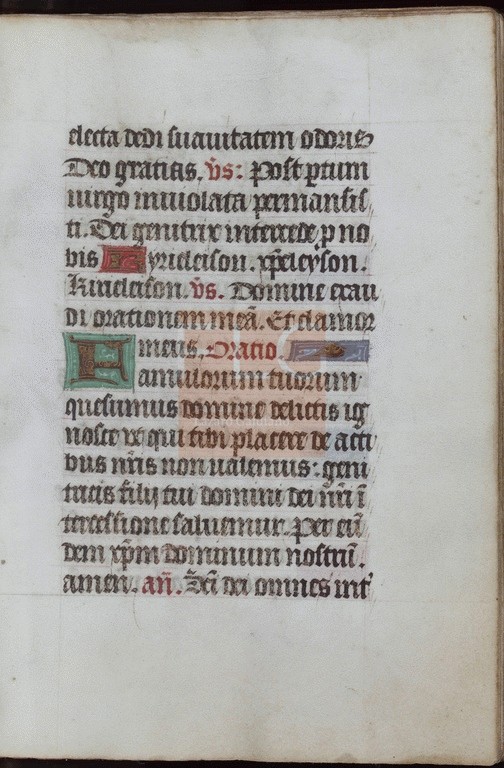 electa dedi suauitatem odoris
Deo gratias. v̄s: Post p̄tum
uirgo inuiolata permansis
ti. Dei genitrix intercede p no
bis Kyrieleison. xp̄eleyson.
Kirieleison. v̄s. Domine exau
di orationem meā. Et clamor
meus. Oratio.
Famulorum tuorum
quesumus domine delictis ig
nosce vt qui tibi placere de acti
bus nr̄is non ualemus: geni
tricis filij tui domini dei nr̄i ī
tercessione saluemur. Per eū
dem xp̄m dominum nostrū.
amen. an̄. Sc̄i dei omnes int